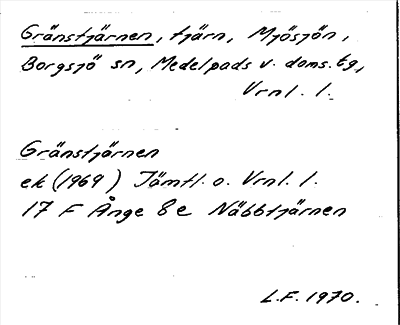 Gränstjärnen, tjärn, Mjösjön,
Borgsjö sn, Medelpads v. doms. tg,
Vrnl. l.
Gränstjärnen
ek (1969) Jämtl. o. Vrnl. l.
17 F Ånge 8e Näbbtjärnen
L.F. 1970.